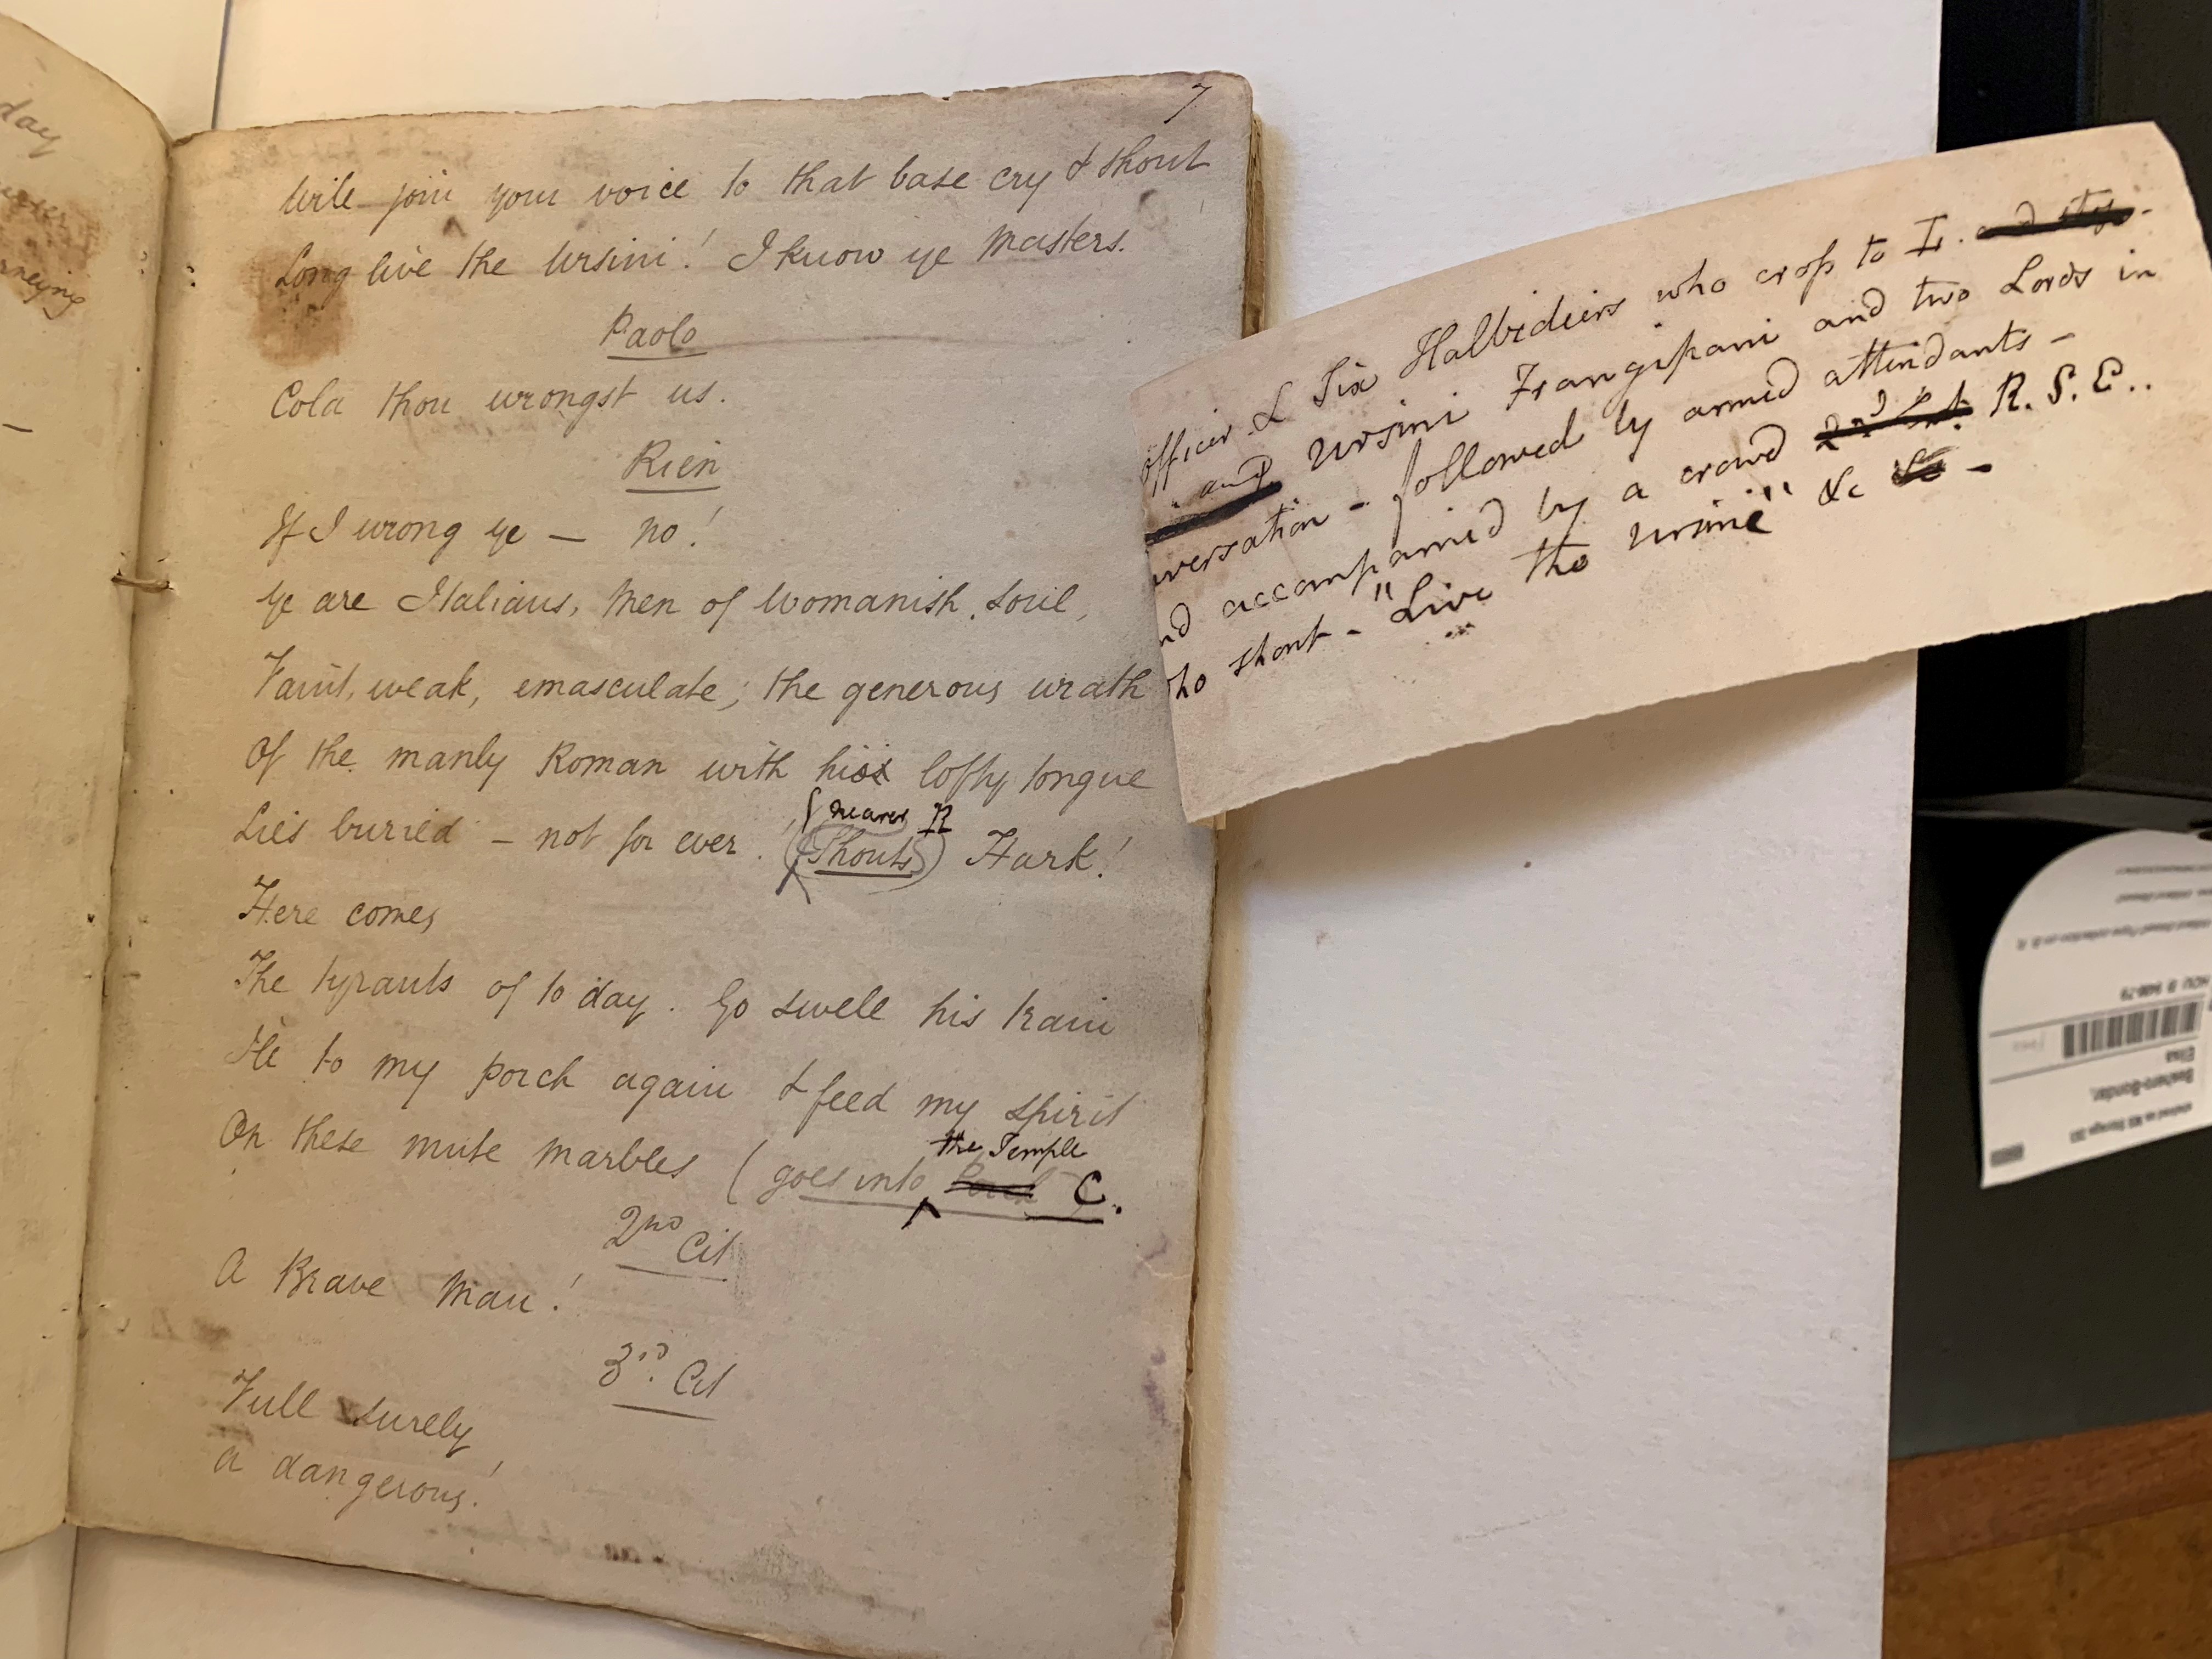 7
Will join your voice to that base cry & shout
Long live the Ursini! I know ye Masters.
Paolo
Cola thou wrongst us.
Rien
If I wrong ye — no!
Ye are Italians, Men of Womanish soul,
Faint, weak, emasculate; the generous wrath
Of the manly Roman with his lofty tongue
nearer R
Lies buried – not for ever! (Shouts) Hark!
Here comes
The tyrants of to day. Go swell his train
to my porch again & feed my spirit
the Temple
On these mute marbles (goes into Porch C.
2nd Cit
A Brave Man!
3rd Cit
Full surely
a dangerous!
officer L Six Halbidiers who cross to
and Ursini Frangipani and two Lords in
versation – followed by armed attendants –
nd accompanied by a crowd R.S.E..
ho shout – "Live the Ursini" &c &c –
day